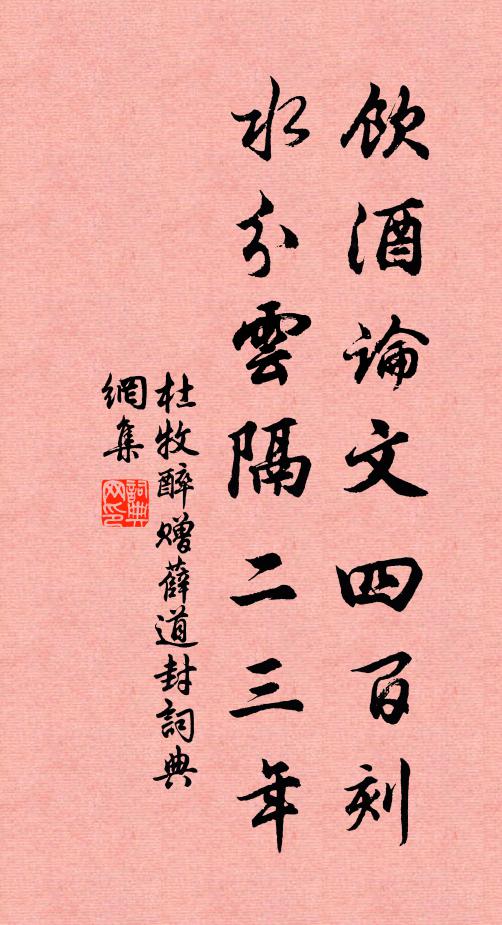 飲酒論文四百刻
水分雲隔二三年
杜牧醉贈薛道封詞典
網集
詞典网印